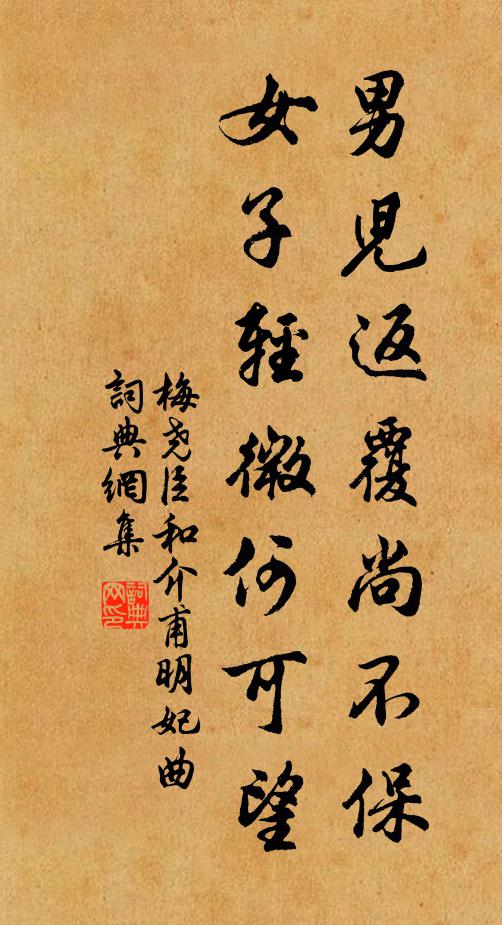 男兒返覆尚不保
女子輕微何可望
梅堯臣和介甫明妃曲
詞典網集
詞典網印